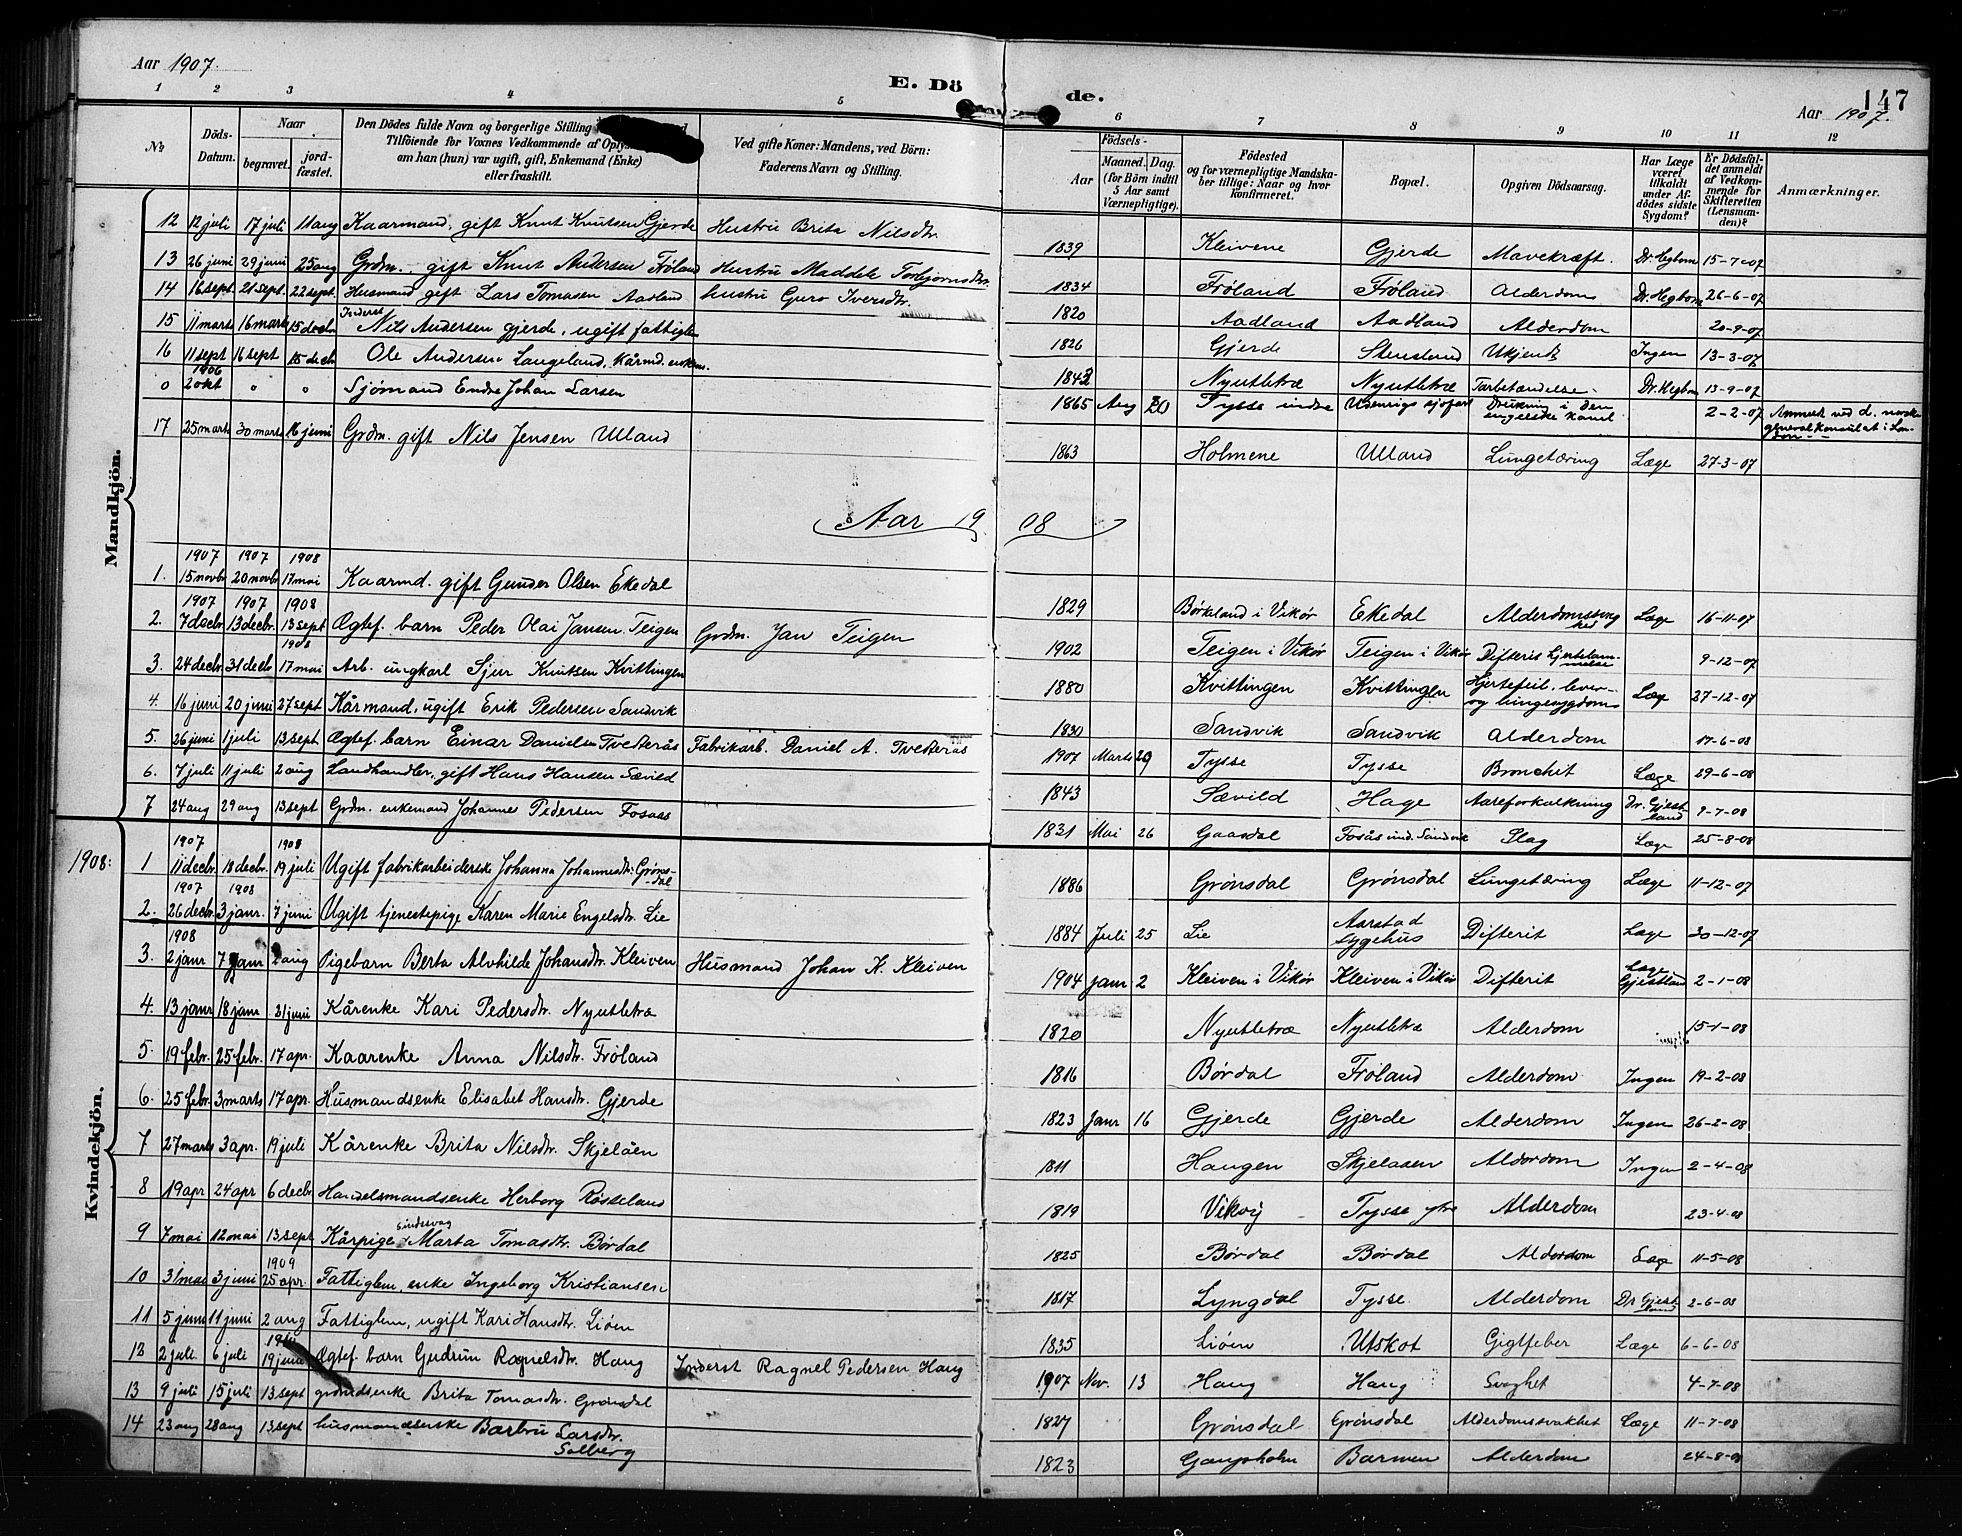 Aar 1907.
E. Dö de.
147
Aar 1907.
1 2 3 4 5 6 7 8 9 10 11 12
No
Döds-Datum.
Naar
begravet.
jord-fæstet.
Den Dödes fulde Navn og borgerlige Stilling
Tilföiende for Voxnes Vedkommende af
om han (hun) var ugift, gift, Enkemand (Enke)
eller fraskilt.
Ved gifte Koner: Mandens, ved Börn:
Faderens Navn og Stilling.
Födsels-
Aar
Maaned. Dag.
(for Börn indtil
5 Aar samt
Værnepligtige).
Födested
og for værnepligtige Mandska-
ber tillige: Naar og hvor
konfirmeret.
Bopæl.
Opgiven Dödsaarsag.
Har Læge
været
tilkaldt
under Af-
dödes sidste
Sygdom?
Er Dödsfal-
det anmeldt
af Vedkom-
mende for
Skifteretten
(Lensman-
den)?
Anmærkninger.
Mandkjön.
12 12 juli 17 juli 11 aug Kaarmand, gift Knut Knutsen Gjerde Hustru Brita Nilsdtr. 1839 Kleivene Gjerde Mavekræft. Dr. Hegbom 15-7-07
13 26 juni 29 juni 25 aug Grdm. gift Knut Andersen Frøland Hustru Maddele Torbjørnsdtr. 1834 Frøland Frøland Alderdom Dr. Hegbom 26-6-07
14 16 sept. 21 sept. 22 sept. Husmand gift Lars Tomasen Aadland hustru Guro Iversdtr. 1820 Aadland Aadland Alderdom 20-9-07
15 11 marts 16 marts 15 decbr Inderst Nils Andersen Gjerde, ugift fattiglem 1826 Gjerde Stensland Ukjendt Ingen 13-3-07
16 11 sept 16 sept 15 decbr Ole Andersen Langeland, kårmd. enkem. 1842 Nyutletræ Nyutletræ Tarbetændelse Dr. Hegbom 13-9-07
0 1906 2 okt " " Sjømand Endre Johan Larsen 1865 Aug 20 Tysse indre Udenrigs sjøfart Drukning i den engelske kanal 2-2-07 Anmeldt ved d. norske generalkonsulat i London
17 25 marts 30 marts 16 juni Grdm. gift Nils Jensen Ulland 1863 Holmene Ulland Lungetæring Læge 27-3-07
Aar 1908
1. 1907 15 novbr 1907 20 novbr 1908 17 mai Kaarmd. gift Gunder Olsen Ekedal 1829 Børkeland i Vikør Ekedal Alderdomssvaghed Læge 16-11-07
2. 1907 7 decbr 1907 13 decbr. 1908 13 sept Ægtef. barn Peder Olai Jansen Teigen Grdm. Jan Teigen 1902 Teigen i Vikør Teigen i Vikør Difterit hjertelammelse 9-12-07
3. 24 decbr 31 decbr 1908 17 mai Arb. ungkarl Sjur Knutsen Kvittingen 1880 Kvittingen Kvittingen Hjertefeil, lever- og lungesygdom Læge 27-12-07
4. 16 juni 20 juni 27 sept Kårmand, ugift Erik Pedersen Sandvik 1830 Sandvik Sandvik Alderdom 17-6-08
5. 26 juni 1 juli 13 sept Ægtef. barn Einar Danielsen Tvetterås Fabrikarb. Daniel A. Tvetterås 1907 Marts 29 Tysse Tysse Bronchit Læge 29-6-08
6. 7 juli 11 juli 2 aug Landhandler, gift Hans Hansen Sævild 1843 Sævild Hage Aareforkalkning Dr. Gjestland 9-7-08
7 24 aug 29 aug 13 sept Grdm. enkemand Johannes Pedersen Fosaas 1831 Mai 26 Gaasdal Fosås ind. Sandvik Slag Læge 25-8-08
Kvindekjön.
1908:
1 1907 11 decbr. 18 decbr. 1908 19 juli Ugift fabrikarbeiderske Johanna Johannesdtr. Grønsdal 1886 Grønsdal Grønsdal Lungetæring Læge 11-12-07
2. 1907 26 decbr. 1908 3 janr. 7 juni Ugift tjenestepige Karen Marie Engelsdtr. Lie 1884 Juli 25 Lie Aarstad sygehus Difterit Læge 30-12-07
3. 1908 2 janr 7 janr 2 aug Pigebarn Berta Alvhilde Johansdtr. Kleiven Husmand Johan K. Kleiven 1904 janr 2 Kleiven i Vikør Kleiven i Vikør Difterit Læge Gjestland 2-1-08
4. 13 janr 18 janr 21 juni Kårenke Kari Pedersdtr. Nyutletræ 1820 Nyutletræ Nyutletræ Alderdom 15-1-08
5. 19 febr. 25 febr. 17 apr. Kaarenke Anna Nilsdtr. Frøland 1816 Børdal Frøland Alderdom Ingen 19-2-08
6. 25 febr. 3 marts 17 apr. Husmandsenke Elisabet Hansdtr. Gjerde 1823 Janr 16 Gjerde Gjerde Alderdom Ingen 26-2-08
7 27 marts 3 apr. 19 juli Kårenke Brita Nilsdtr. Skjelåen 1811 Haugen Skjelaaen Alderdom Ingen 2-4-08
8 19 apr 24 apr 6 decbr. Handelsmandsenke Herborg Røsseland 1819 Vikøy Tysse ytre Alderdom 23-4-08
9 7 mai 12 mai 13 sept Kårpige sindssvag Marta Tomasdtr. Børdal 1825 Børdal Børdal Alderdom Læge 11-5-08
10 31 mai 3 juni 1909 25 apr. Fattiglem, enke Ingeborg Kristiansen 1817 Lyngdal Tysse Alderdom Dr Gjestland 2-6-08
11 5 juni 11 juni 2 aug Fattiglem, ugift Kari Hansdtr. Liøen 1835 Liøen Utskot Gigtfeber Læge 6-6-08
12 2 juli 6 juli 1910 19 juni Ægtef. barn Gudrun Ragnelsdtr. Haug Inderst Ragnel Pedersen Haug 1907 Nov. 13 Haug Haug Svaghet 4-7-08
13 9 juli 15 juli 13 sept grdmdsenke Brita Tomasdtr. Grønsdal 1827 Grønsdal Grønsdal Alderdomssvakhet Læge 11-7-08
14 23 aug 28 aug 13 sept husmandsenke Barbru Larsdtr. Solberg 1823 Gaupholm Barmen Alderdom 24-8-08